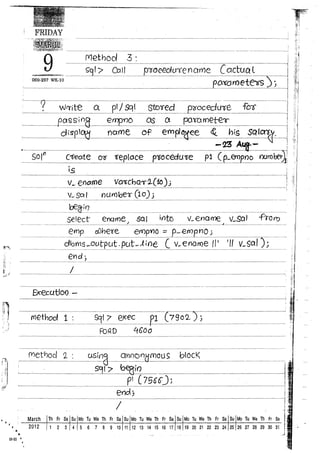 FRIDAY
MARCH
9
069-297 WK-10
Method 3 :
sql> call procedurename (actual
parameters);
? write a pl/sql stored procedure for
passing empno as a parameter
display name of employee & his salary.
- 23 Aug -
Solⁿ create or replace procedure p1 (p_empno number)
is
v_ename varchar2(10);
v_sal number(10);
begin
select ename, sal into v_ename, v_sal from
emp where empno = p_empno;
dbms_output.put_line (v_ename ||' '|| v_sal);
end;
/
Execution -
method 1 : sql> exec p1 (7902);
FORD 4600
method 2 : using annonymous block
sql> begin
p1 (7566);
end;
/
March Th Fr Sa Su Mo Tu We Th Fr Sa Su Mo Tu We Th Fr Sa Su Mo Tu We Th Fr Sa Su Mo Tu We Th Fr Sa
2012 1 2 3 4 5 6 7 8 9 10 11 12 13 14 15 16 17 18 19 20 21 22 23 24 25 26 27 28 29 30 31